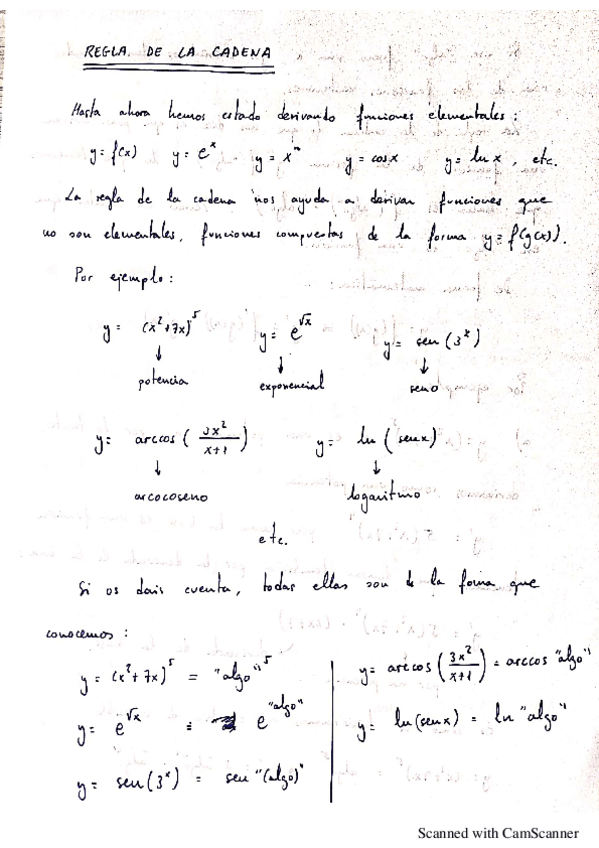 REGLA DE LA CADENA
Hasta ahora hemos estado derivando funciones elementales:
y = f(x) y = eˣ y = xⁿ y = cos x y = ln x, etc.
La regla de la cadena nos ayuda a derivar funciones que
no son elementales, funciones compuestas de la forma y = f(g(x)).
Por ejemplo:
y = (x²+7x)⁵ y = e^√x y = sen (3ˣ)
↓ ↓ ↓
potencia exponencial seno
y = arccos (3x²/x+1) y = ln (senx)
↓ ↓
arcocoseno logaritmo
etc.
Si os dais cuenta, todas ellas son de la forma que
conocemos:
y = (x²+7x)⁵ = "algo"⁵
y = e^√x = e^"algo"
y = sen (3ˣ) = sen "(algo)"
y = arccos (3x²/x+1) = arccos "algo"
y = ln (senx) = ln "algo"
Scanned with CamScanner